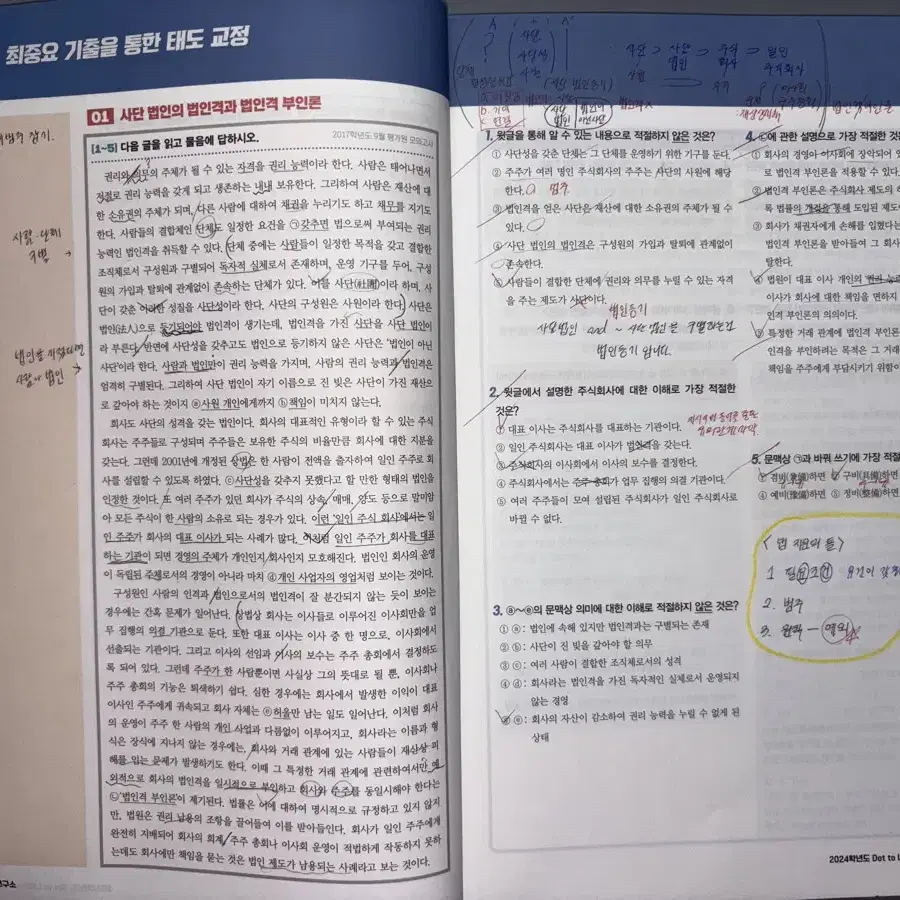 최중요 기출을 통한 태도 교정
01 사단 법인의 법인격과 법인격 부인론
[1~5] 다음 글을 읽고 물음에 답하시오.
2017학년도 9월 평가원 모의고사
권리와 의무의 주체가 될 수 있는 자격을 권리 능력이라 한다. 사람은 태어나면서
저절로 권리 능력을 갖게 되고 생존하는 내내 보유한다. 그리하여 사람은 재산에 대
한 소유권의 주체가 되며, 다른 사람에 대하여 채권을 누리기도 하고 채무를 지기도
한다. 사람들의 결합체인 단체도 일정한 요건을 ㉠갖추면 법으로써 부여되는 권리
능력인 법인격을 취득할 수 있다. 단체 중에는 사람들이 일정한 목적을 갖고 결합한
조직체로서 구성원과 구별되어 독자적 실체로서 존재하며, 운영 기구를 두어, 구성
원의 가입과 탈퇴에 관계없이 존속하는 단체가 있다. 이를 사단(社團)이라 하며, 사
단이 갖춘 이러한 성질을 사단성이라 한다. 사단의 구성원은 사원이라 한다. 사단은
법인(法人)으로 등기되어야 법인격이 생기는데, 법인격을 가진 사단을 사단 법인이
라 부른다. 반면에 사단성을 갖추고도 법인으로 등기하지 않은 사단은 '법인이 아닌
사단'이라 한다. 사람과 법인만이 권리 능력을 가지며, 사람의 권리 능력과 법인격은
엄격히 구별된다. 그리하여 사단 법인이 자기 이름으로 진 빚은 사단이 가진 재산으
로 갚아야 하는 것이지 ⓐ사원 개인에게까지 ⓑ책임이 미치지 않는다.
회사도 사단의 성격을 갖는 법인이다. 회사의 대표적인 유형이라 할 수 있는 주식
회사는 주주들로 구성되며 주주들은 보유한 주식의 비율만큼 회사에 대한 지분을
갖는다. 그런데 2001년에 개정된 상법은 한 사람이 전액을 출자하여 일인 주주로 회
사를 설립할 수 있도록 하였다. ⓒ사단성을 갖추지 못했다고 할 만한 형태의 법인을
인정한 것이다. 또 여러 주주가 있던 회사가 주식의 상속, 매매, 양도 등으로 말미암
아 모든 주식이 한 사람의 소유로 되는 경우가 있다. 이런 '일인 주식 회사'에서는 일
인 주주가 회사의 대표 이사가 되는 사례가 많다. 이처럼 일인 주주가 회사를 대표
하는 기관이 되면 경영의 주체가 개인인지 회사인지 모호해진다. 법인인 회사의 운영
이 독립된 주체로서의 경영이 아니라 마치 ⓓ개인 사업자의 영업처럼 보이는 것이다.
구성원인 사람의 인격과 법인으로서의 법인격이 잘 분간되지 않는 듯이 보이는
경우에는 간혹 문제가 일어난다. 상법상 회사는 이사들로 이루어진 이사회만을 업
무 집행의 의결 기관으로 둔다. 또한 대표 이사는 이사 중 한 명으로, 이사회에서
선출되는 기관이다. 그리고 이사의 선임과 이사의 보수는 주주 총회에서 결정하도
록 되어 있다. 그런데 주주가 한 사람뿐이면 사실상 그의 뜻대로 될 뿐, 이사회나
주주 총회의 기능은 퇴색하기 쉽다. 심한 경우에는 회사에서 발생한 이익이 대표
이사인 주주에게 귀속되고 회사 자체는 ⓔ허울만 남는 일도 일어난다. 이처럼 회사
의 운영이 주주 한 사람의 개인 사업과 다름없이 이루어지고, 회사라는 이름과 형
식은 장식에 지나지 않는 경우에는, 회사와 거래 관계에 있는 사람들이 재산상 피
해를 입는 문제가 발생하기도 한다. 이때 그 특정한 거래 관계에 관련하여서만 예
외적으로 회사의 법인격을 일시적으로 부인하고 회사와 주주를 동일시해야 한다는
㉡'법인격 부인론'이 제기된다. 법률은 이에 대하여 명시적으로 규정하고 있지 않지
만, 법원은 권리 남용의 조항을 끌어들여 이를 받아들인다. 회사가 일인 주주에게
완전히 지배되어 회사의 회계, 주주 총회나 이사회 운영이 적법하게 작동하지 못하
는데도 회사에만 책임을 묻는 것은 법인 제도가 남용되는 사례라고 보는 것이다.
사람·단체
구별
1. 윗글을 통해 알 수 있는 내용으로 적절하지 않은 것은?
① 사단성을 갖춘 단체는 그 단체를 운영하기 위한 기구를 둔다.
② 주주가 여러 명인 주식회사의 주주는 사단의 사원에 해당
한다. 범주
③ 법인격을 얻은 사단은 재산에 대한 소유권의 주체가 될 수
있다.
④ 사단 법인의 법인격은 구성원의 가입과 탈퇴에 관계없이
존속한다.
⑤ 사람들이 결합한 단체에 권리와 의무를 누릴 수 있는 자격
을 주는 제도가 사단이다.
법인등기
법인등기 입니다.
2. 윗글에서 설명한 주식회사에 대한 이해로 가장 적절한
것은?
① 대표 이사는 주식회사를 대표하는 기관이다.
② 일인 주식회사는 대표 이사가 법인격을 갖는다.
③ 주식회사의 이사회에서 이사의 보수를 결정한다.
④ 주식회사에서는 주주 총회가 업무 집행의 의결 기관이다.
⑤ 여러 주주들이 모여 설립된 주식회사가 일인 주식회사로
바뀔 수 없다.
3. ⓐ~ⓔ의 문맥상 의미에 대한 이해로 적절하지 않은 것은?
① ⓐ: 법인에 속해 있지만 법인격과는 구별되는 존재
② ⓑ: 사단이 진 빚을 갚아야 할 의무
③ ⓒ: 여러 사람이 결합한 조직체로서의 성격
④ ⓓ: 회사라는 법인격을 가진 독자적인 실체로서 운영되지
않는 경영
⑤ ⓔ: 회사의 자산이 감소하여 권리 능력을 누릴 수 없게 된
상태
4. ㉡에 관한 설명으로 가장 적절한 것
① 회사의 경영이 이사회에 장악되어 있
로 법인격 부인론을 적용할 수 있다.
② 법인격 부인론은 주식회사 제도의 허
록 법률의 개정을 통해 도입된 제도이
③ 회사가 채권자에게 손해를 입혔다는
법인격 부인론을 받아들여 그 회사
탈한다.
④ 법원이 대표 이사 개인의 권리 능력
이사가 회사에 대한 책임을 면하지
인격 부인론의 의의이다.
⑤ 특정한 거래 관계에 법인격 부인론
인격을 부인하려는 목적은 그 거래
책임을 주주에게 부담시키기 위함이
5. 문맥상 ㉠과 바꿔 쓰기에 가장 적절
① 겸비(兼備)하면 ② 구비(具備)하면
④ 예비(豫備)하면 ⑤ 정비(整備)하면
1 필요조건
2. 범주
3. 원칙 - 예외
2024학년도 Dot to L
연구소